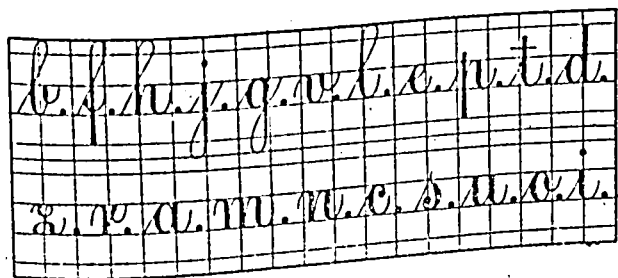 b.f.h.j.g.v.l.e.p.t.d.
z.r.a.m.n.c.s.u.o.i.